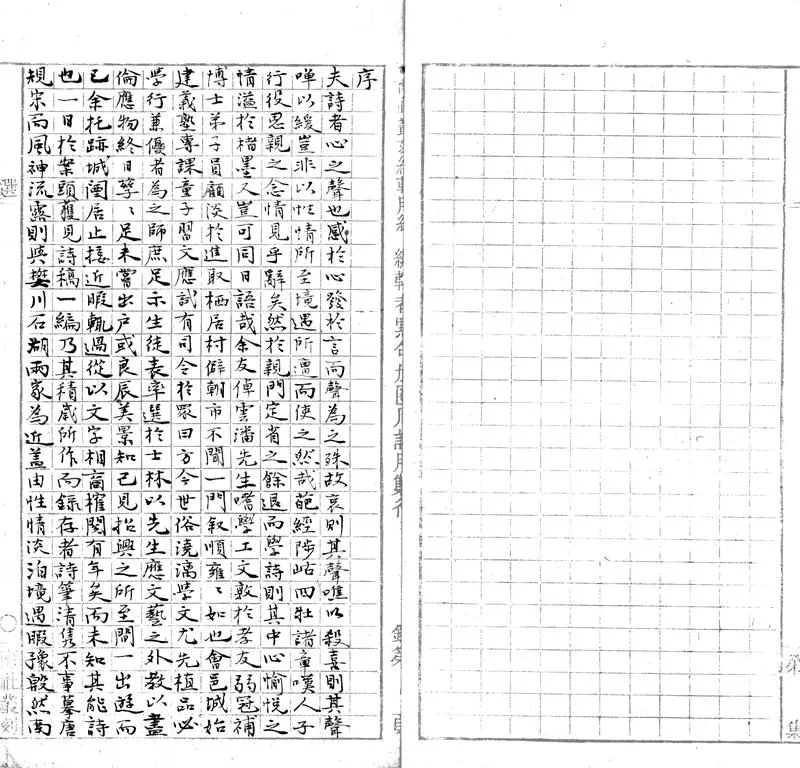 序
夫詩者心之聲也感於心發於言而聲為之殊故哀則其聲噍以殺喜則其聲
嘽以緩豈非以性情所至境遇所遭而使之然哉葩經陟岵四牡諸章嘆人子
行役思親之念情見乎辭矣然於親門定省之餘退而學詩則其中心愉悅之
情溢於楮墨又豈可同日語哉余友倬雲潘先生嗜學工文敦於孝友弱冠補
博士弟子員顧淡於進取栖居村僻朝市不聞一門叙順雍〻如也會邑城始
建義塾專課童子習文應試有司令於眾曰方今世俗澆漓學文尤先植品必
學行兼優者為之師庶足示生徒表率選於士林以先生應文藝之外教以盡
倫應物終日孳〻足未嘗出戶或良辰美景知己見招興之所至間一出遊而
已余托跡城闉居止接近暇輒過從以文字相商榷閱有年矣而未知其能詩
也一日於案頭獲見詩稿一編乃其積歲所作而錄存者詩筆清雋不事摹唐
規宋而風神流露則與樊川石湖兩家為近蓋由性情淡泊境遇暇豫殷然而
選
叢刻
集